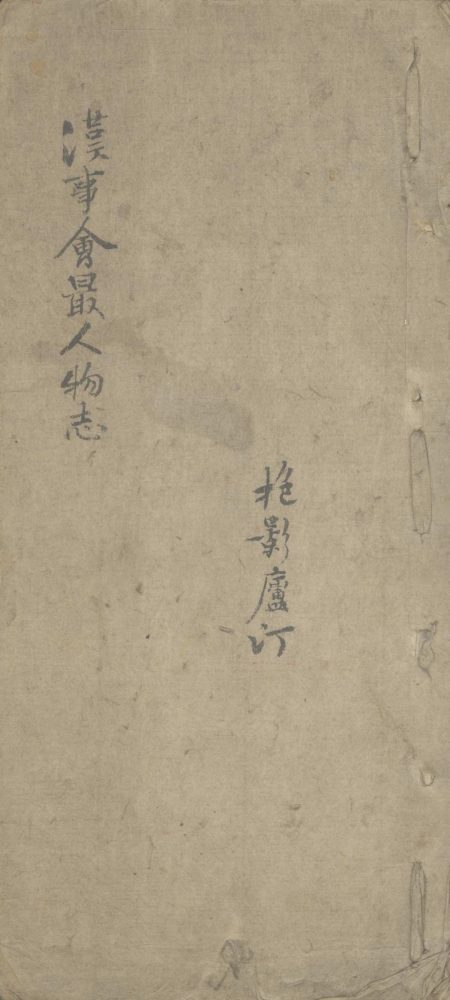 抱影廬訂
漢事會最人物志